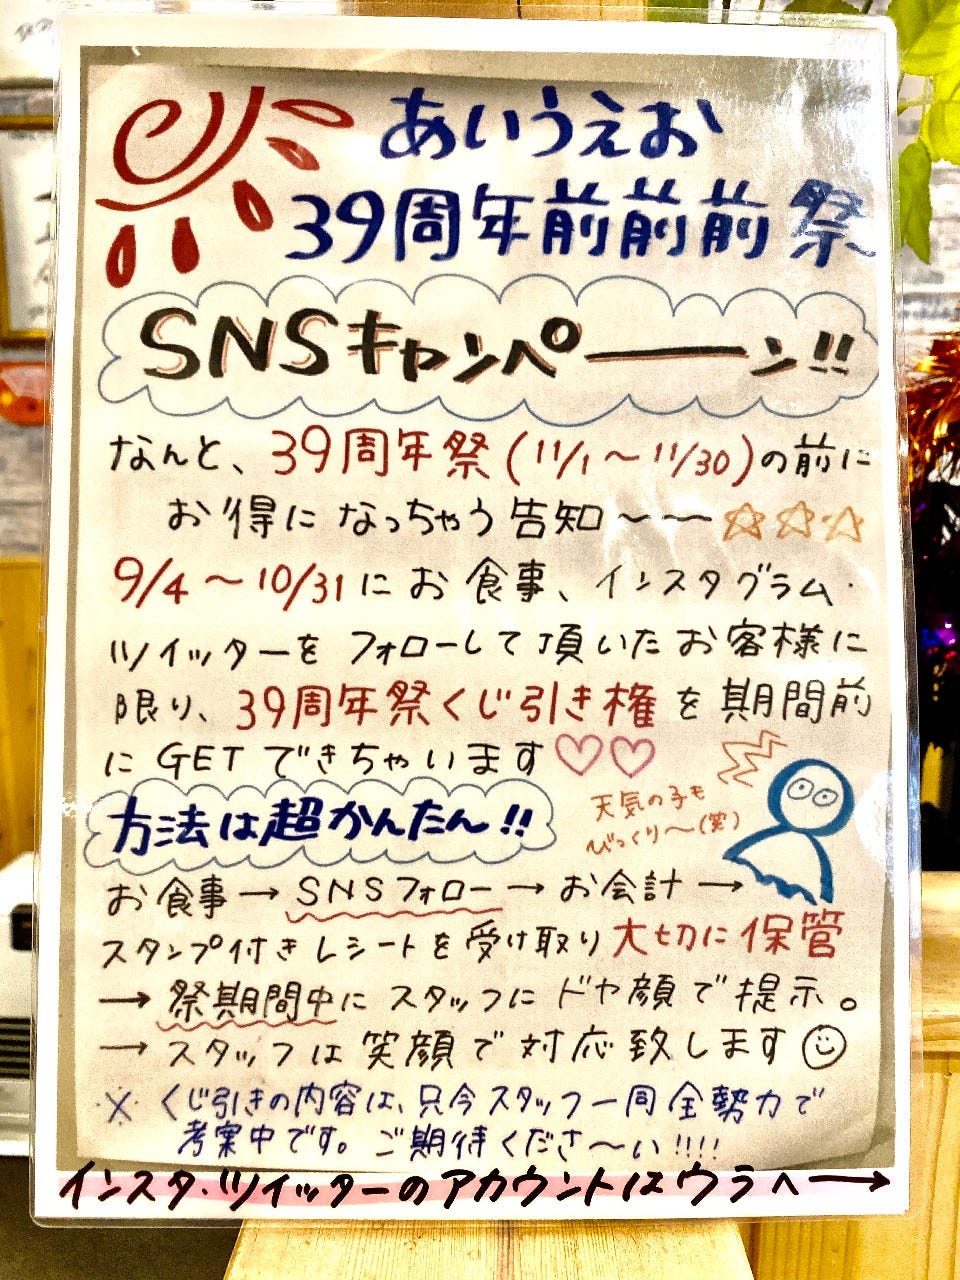 あいうえお
39周年前前前祭
SNSキャンペーン!!
なんと、39周年祭(11/1～11/30)の前に
お得になっちゃう告知～～☆☆☆
9/4～10/31にお食事、インスタグラム・
ツイッターをフォローして頂いたお客様に
限り、39周年祭くじ引き権を期間前
にGETできちゃいます♡♡
天気の子も
びっくり～(笑)
方法は超かんたん!!
お食事→SNSフォロー→お会計→
スタンプ付きレシートを受け取り大切に保管
→祭期間中にスタッフにドヤ顔で提示。
→スタッフは笑顔で対応致します☺
※くじ引きの内容は、只今スタッフ一同全勢力で
考案中です。ご期待くださ～い!!!!
インスタ・ツイッターのアカウントはウラへ→